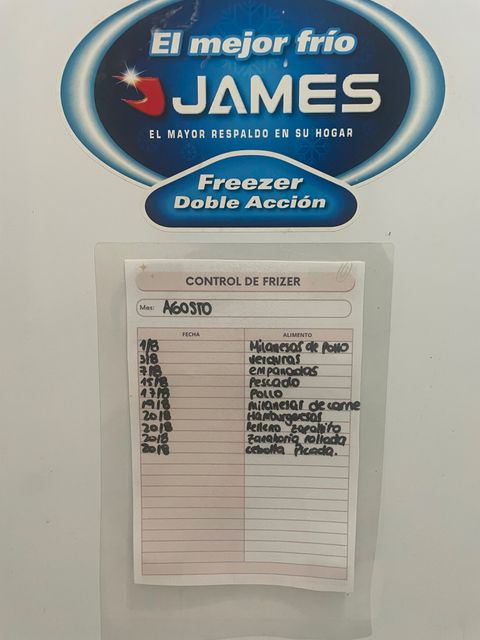 El mejor frío
JAMES
EL MAYOR RESPALDO EN SU HOGAR
Freezer
Doble Acción
CONTROL DE FRIZER
Mes: AGOSTO
FECHA ALIMENTO
1/8 Milanesas de Pollo
3/8 verduras
7/8 empanadas
15/8 Pescado
17/8 Pollo
19/8 milanesas de carne
20/8 Hamburguesas
20/8 Relleno zapallito
20/8 Zanahoria rallada
20/8 cebolla Picada.